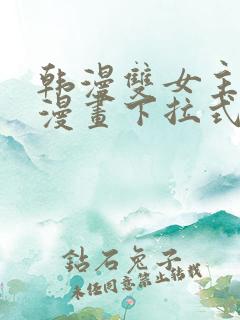 韩漫雙女主
漫畫下拉式
鉆石兔子
未经同意禁止转载